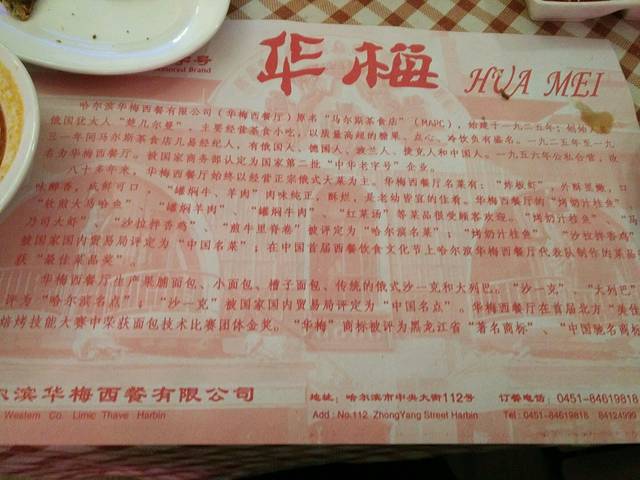 华梅 HUA MEI
哈尔滨华梅西餐有限公司（华梅西餐厅）原名“马尔斯茶食店”（МАРС），始建于一九二五年；始创人
俄国犹太人“楚几尔曼”，主要经营茶食小吃，以质量高超的糖果、点心、冷饮负有盛名。一九二五年至一九
三一年间马尔斯茶食店几易经纪人，有俄国人、德国人、波兰人、捷克人和中国人。一九五六年公私合营，改
名为华梅西餐厅。被国家商务部认定为国家第二批“中华老字号”企业。
八十多年来，华梅西餐厅始终以经营正宗俄式大菜为主。华梅西餐厅名菜有：“炸板虾”，外酥里嫩，口
味鲜香，咸鲜可口；“罐焖牛、羊肉”肉味纯正，酥烂，是老幼皆宜的佳肴。华梅西餐厅的“烤奶汁桂鱼”、
“软煎大马哈鱼”、“罐焖羊肉”、“罐焖牛肉”、“红菜汤”等菜品很受顾客欢迎。“烤奶汁桂鱼”、
乃司大虾”、“沙拉拌香鸡”、“煎牛里脊卷”被评定为“哈尔滨名菜”；“烤奶汁桂鱼”、“沙拉拌香鸡”
被国家国内贸易局评定为“中国名菜”；在中国首届西餐饮食文化节上哈尔滨华梅西餐厅代表队制作的菜品
获“最佳菜品奖”。
华梅西餐厅生产果脯面包、小面包、槽子面包、传统的俄式沙一克和大列巴。“沙一克”、“大列巴”
评为“哈尔滨名点”；“沙一克”被国家国内贸易局评定为“中国名点”。华梅西餐厅在首届北方“美佳
焙烤技能大赛中荣获面包技术比赛团体金奖。“华梅”商标被评为黑龙江省“著名商标”、“中国驰名商标
尔滨华梅西餐有限公司
Western Co. Limic Thave Harbin
地址：哈尔滨市中央大街112号 订餐电话：0451-84619818
Add : No.112 ZhongYang Street Harbin Tel : 0451-84619818 84124999